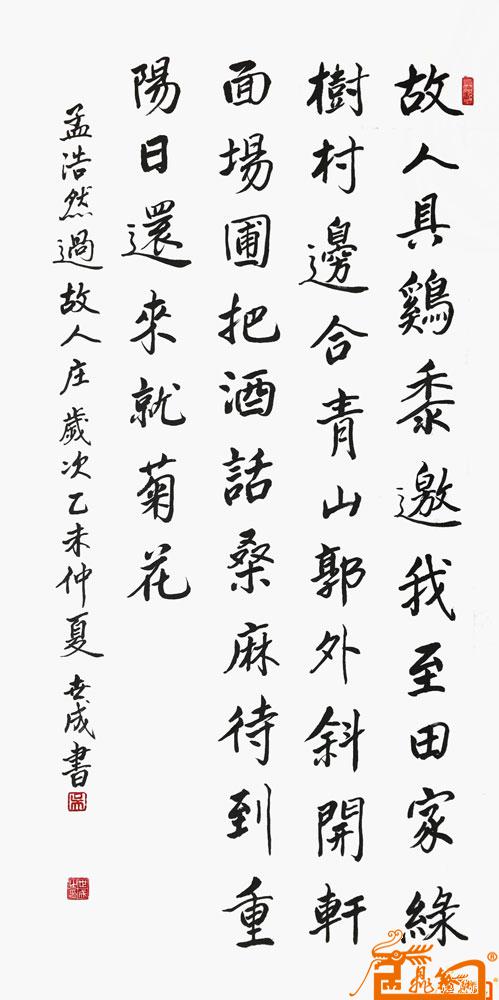 故人具鷄黍邀我至田家綠
樹村邊合青山郭外斜開軒
面場圃把酒話桑麻待到重
陽日還來就菊花
孟浩然過故人庄歲次乙未仲夏世成書